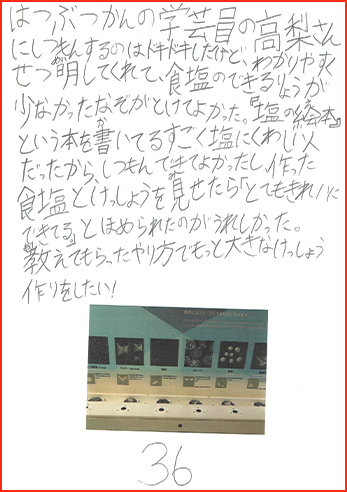 はくぶつかんの学芸員の高梨さん
にしつもんするのはドキドキしたけど、わかりやすく
せつ明してくれて、食塩のできるりょうが
少なかったなぞがとけてよかった。『塩の絵本』
という本を書いてるすごく塩にくわしい人
だったから、しつもんできてよかったし、作った
食塩とけっしょうを見せたら「とてもきれいに
できてる」とほめられたのがうれしかった。
教えてもらったやり方でもっと大きなけっしょう
作りをしたい!
36